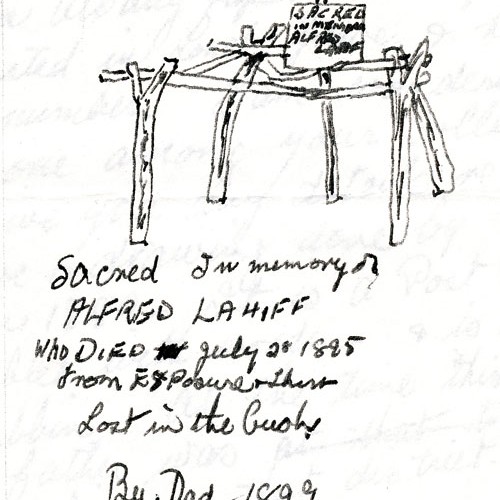 SACRED
IN MEMORY
ALFRED
LAHIFF
Sacred In memory of
ALFRED LAHIFF
WHO DIED July 28 1895
from EXPosure + Thirst
Lost in the bush
By. Dad 1899